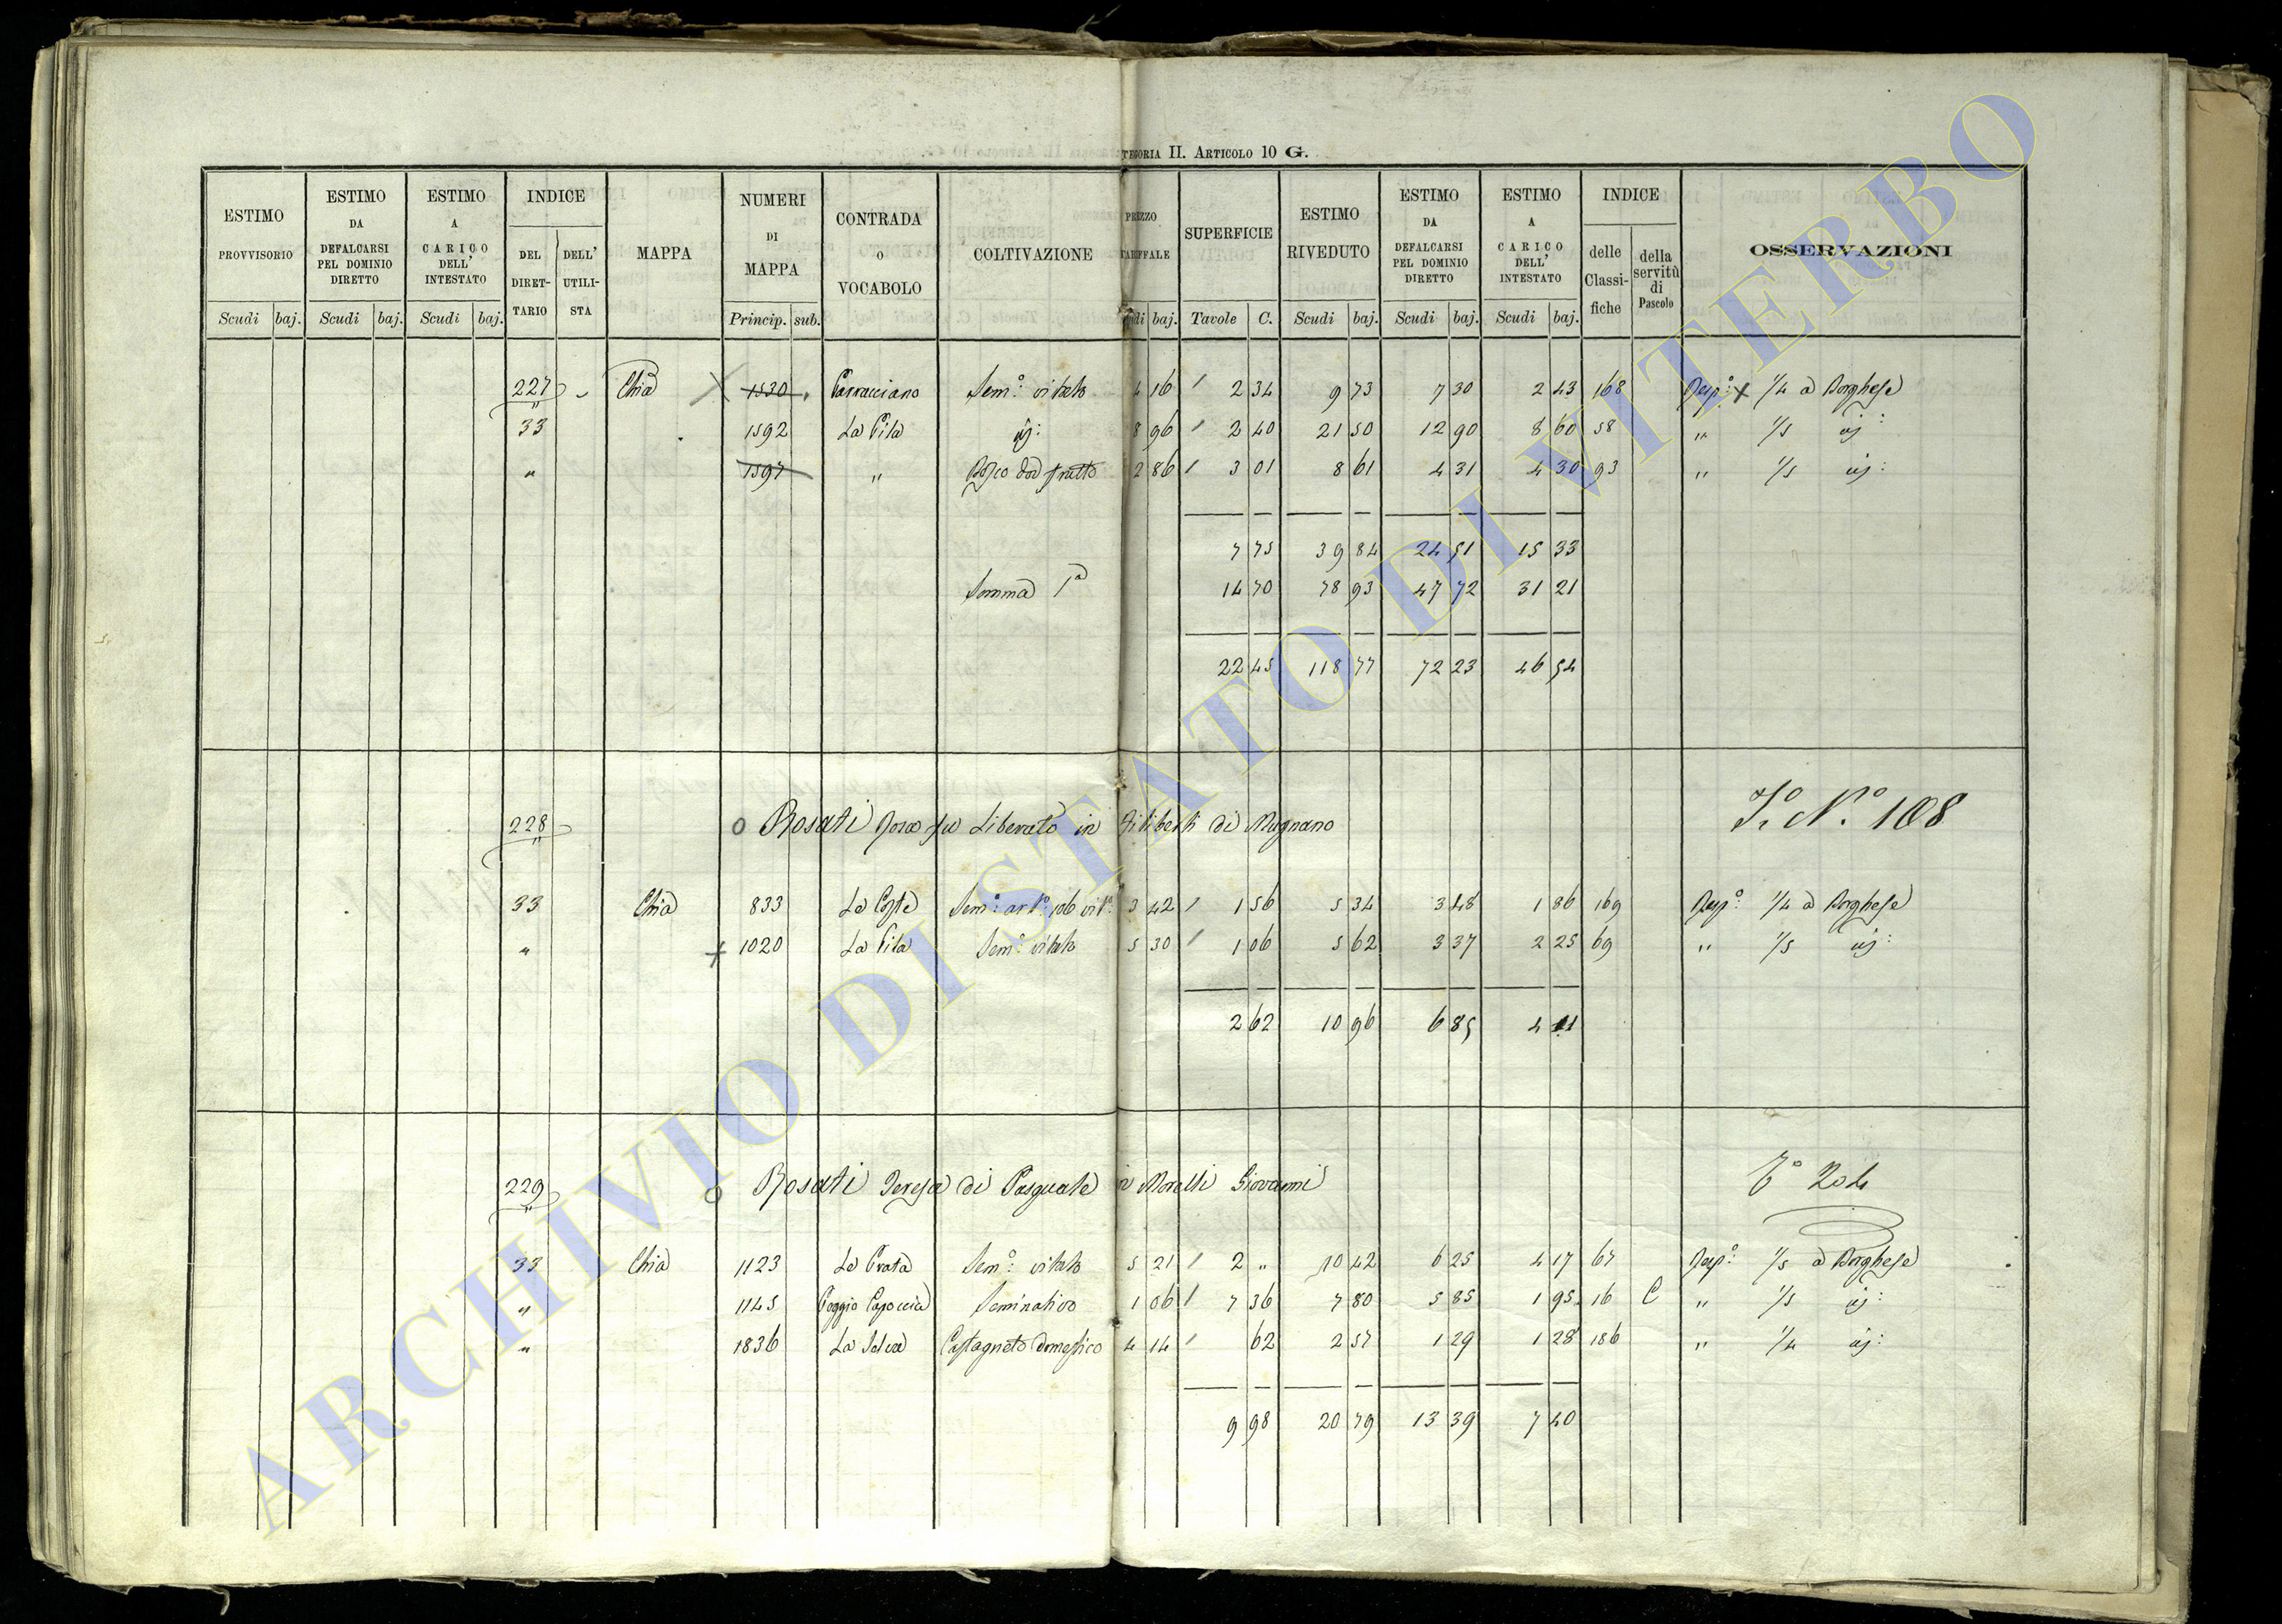 TEGORIA II. ARTICOLO 10 G.
ESTIMO PROVVISORIO Scudi baj.
ESTIMO DA DEFALCARSI PEL DOMINIO DIRETTO Scudi baj.
ESTIMO A CARICO DELL' INTESTATO Scudi baj.
INDICE DEL DIRETTARIO DELL' UTILISTA
MAPPA
NUMERI DI MAPPA Princip. sub.
CONTRADA O VOCABOLO
COLTIVAZIONE
PREZZO TARIFFALE baj.
SUPERFICIE Tavole C.
ESTIMO RIVEDUTO Scudi baj.
ESTIMO DA DEFALCARSI PEL DOMINIO DIRETTO Scudi baj.
ESTIMO A CARICO DELL' INTESTATO Scudi baj.
INDICE delle Classifiche della servitù di Pascolo
OSSERVAZIONI
227 Chia 1530 Sem.° vitato 4 16 2 34 9 73 7 30 2 43 168 Risp.° 1/4 a Borghese
33 1592 La Pila id: 8 96 2 40 21 50 12 90 8 60 58 " 1/5 id:
" 1597 " Bosco dod frutto 2 86 3 01 8 61 4 31 4 30 93 " 1/5 id:
7 75 39 84 24 51 15 33
Somma 1a 14 70 78 93 47 72 31 21
22 45 118 77 72 23 46 54
228 Rosati Rosa fu Liberato in Filiberti di Mugnano N.° 108
33 Chia 833 La Costa Sem.° art.° ob vit.° 3 42 1 56 5 34 3 48 1 86 169 Risp.° 1/4 a Borghese
" 1020 La Pila Sem.° vitato 5 30 1 06 5 62 3 37 2 25 69 " 1/5 id:
2 62 10 96 6 85 4 11
229 Rosati Teresa di Pasquale in Morelli Giovanni T.° 204
33 Chia 1123 La Prata Sem.° vitato 5 21 2 " 10 42 6 25 4 17 67 Risp.° 1/5 a Borghese
" 1145 Poggio Capoccia Seminativo 1 06 7 36 7 80 5 85 1 95 16 C " 1/5 id:
" 1836 La Selva Castagneto domestico 4 14 62 2 57 1 29 1 28 186 " 1/4 id:
9 98 20 79 13 39 7 40
ARCHIVIO DI STATO DI VITERBO